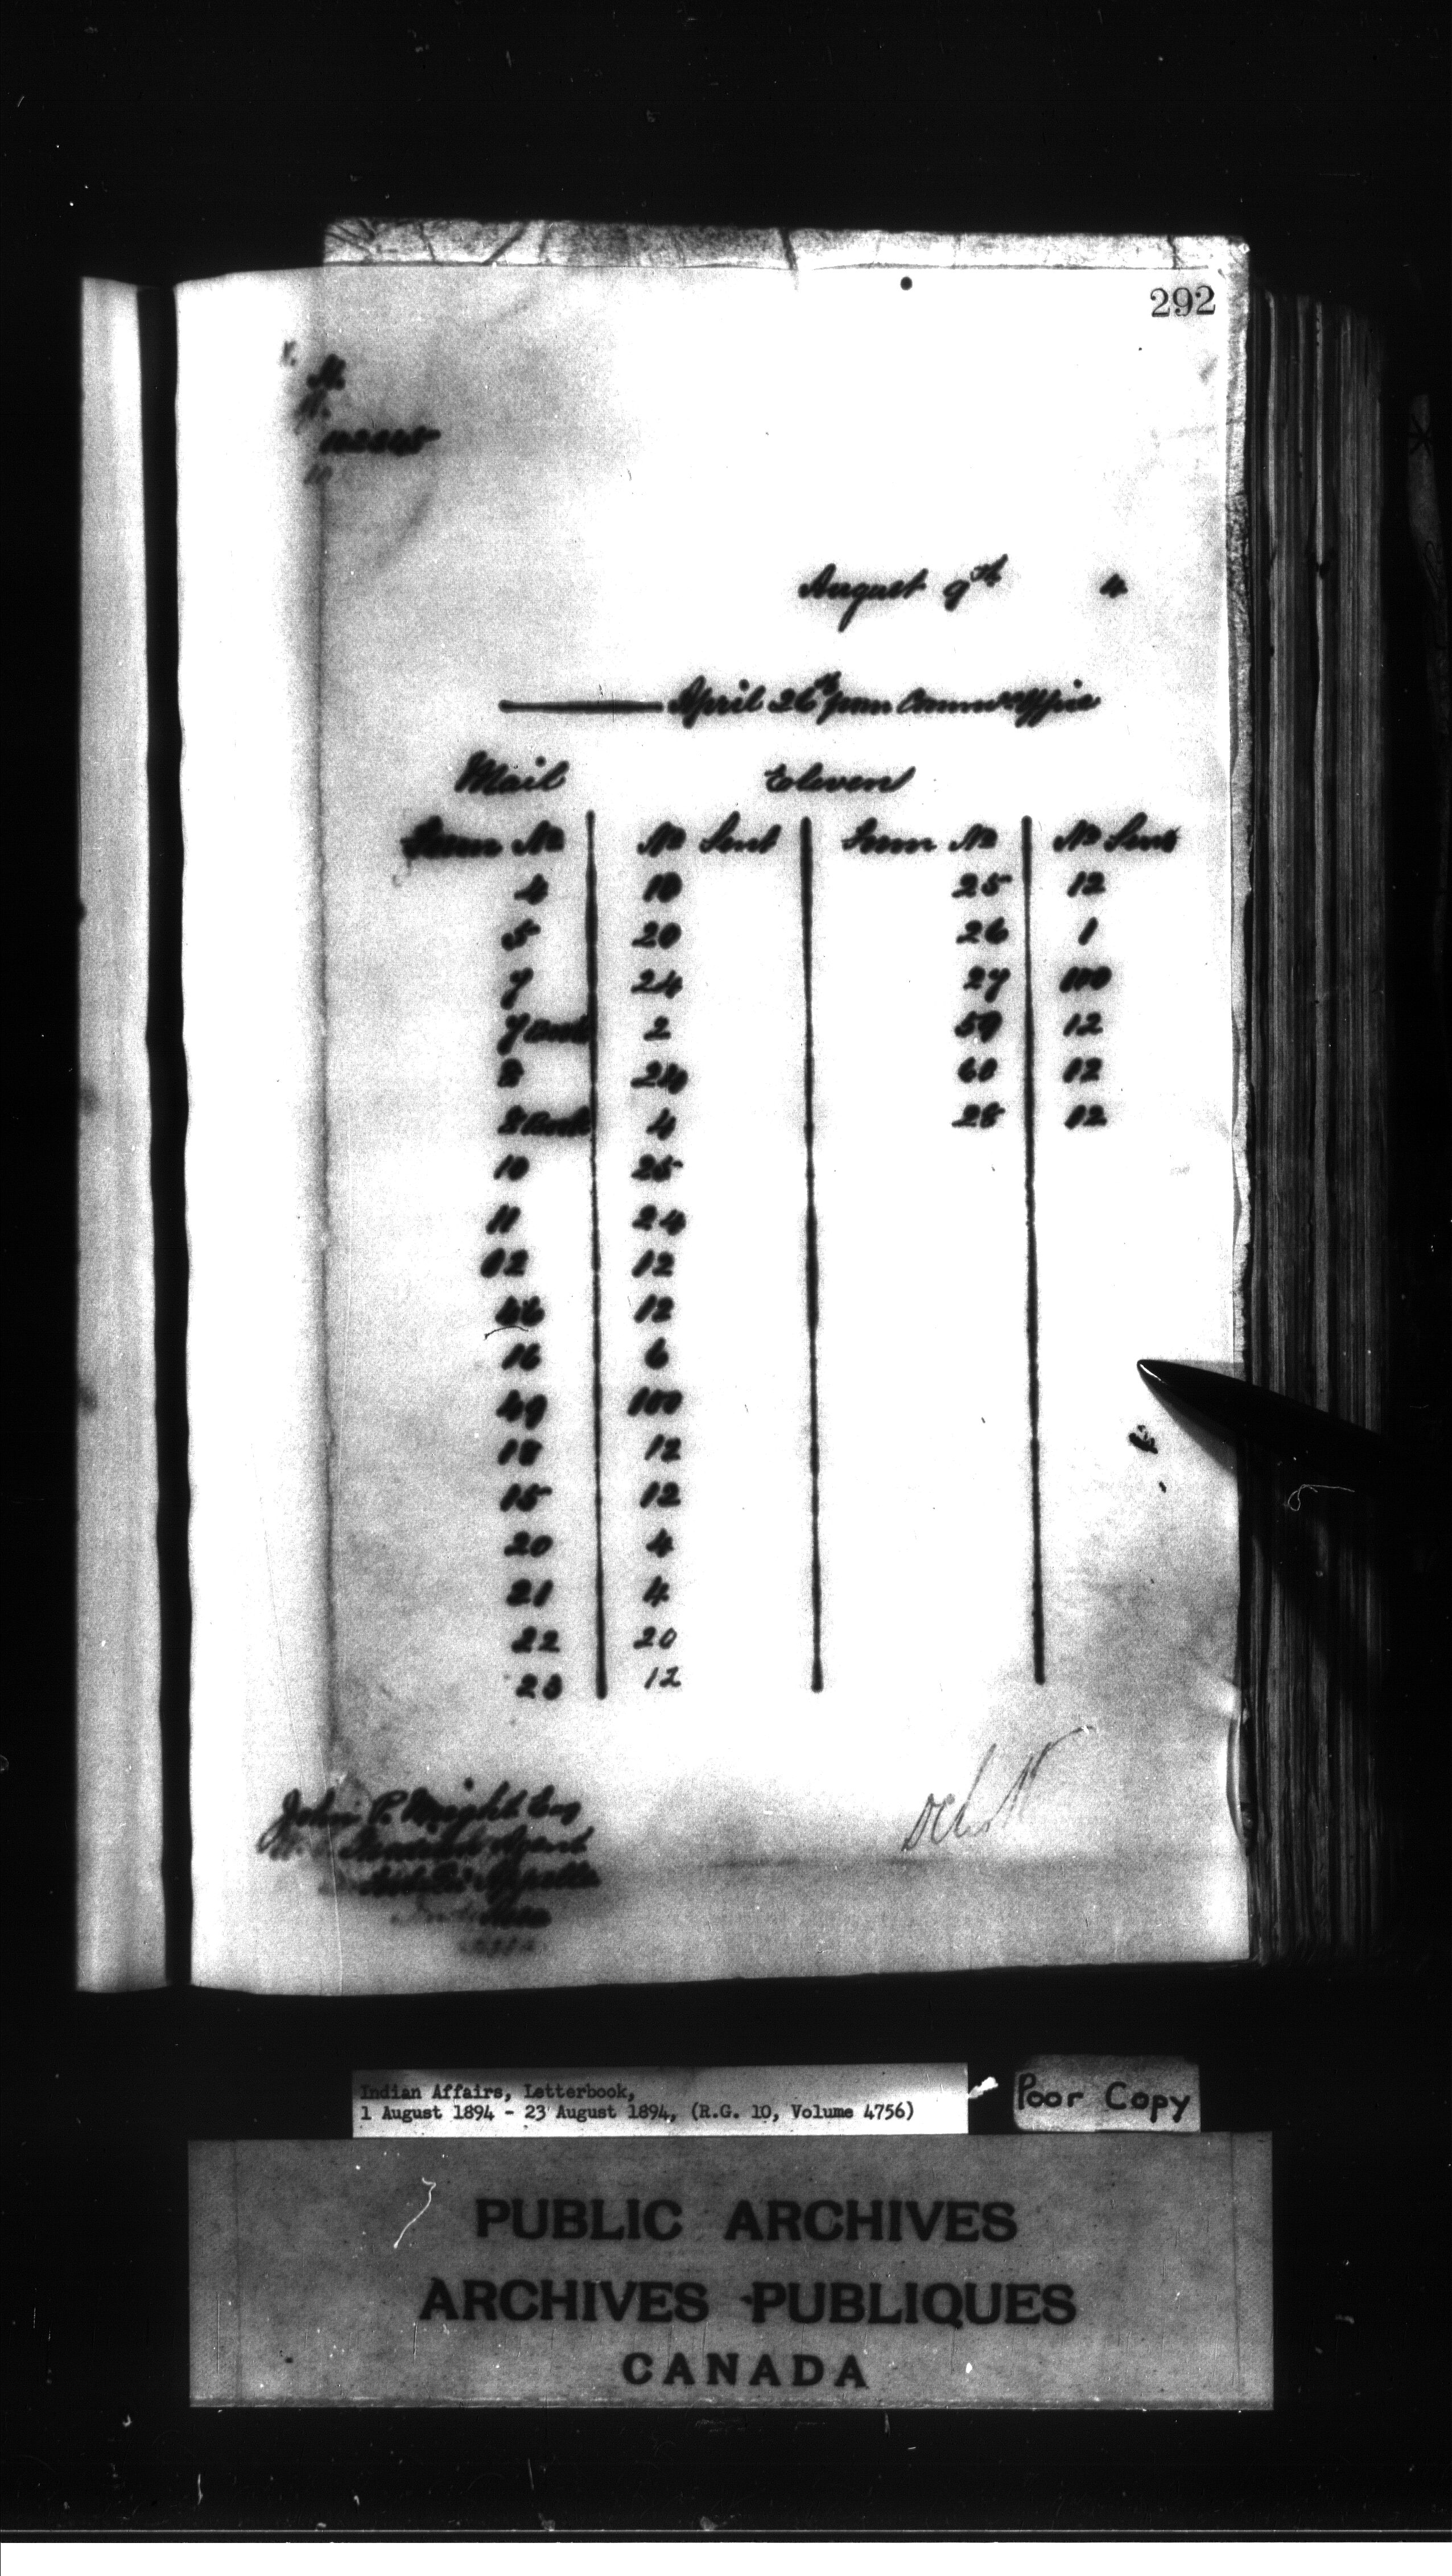 292
112845
August 9th 4
April 26th from Commrs Office
Mail Eleven
Form No No Sent Form No No Sent
4 10 25 12
5 20 26 1
7 24 27 100
7 Book 2 59 12
8 60 12
8 Book 4 28 12
10 25
11 24
12 12
46 12
16 6
49 100
18 12
15 12
20 4
21 4
22 20
23 12
John P. Wright Esq
Indian Agent
Fort Qu'Appelle
Assa
Indian Affairs, Letterbook,
1 August 1894 - 23 August 1894, (R.G. 10, Volume 4756)
Poor Copy
PUBLIC ARCHIVES
ARCHIVES PUBLIQUES
CANADA